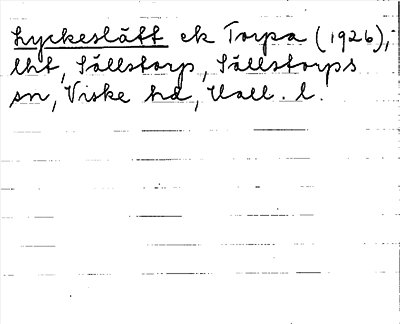 Lyckeslätt ek Torpa (1926),
lht, Sällstorp, Sällstorps
sn, Viske hd, Hall. l.